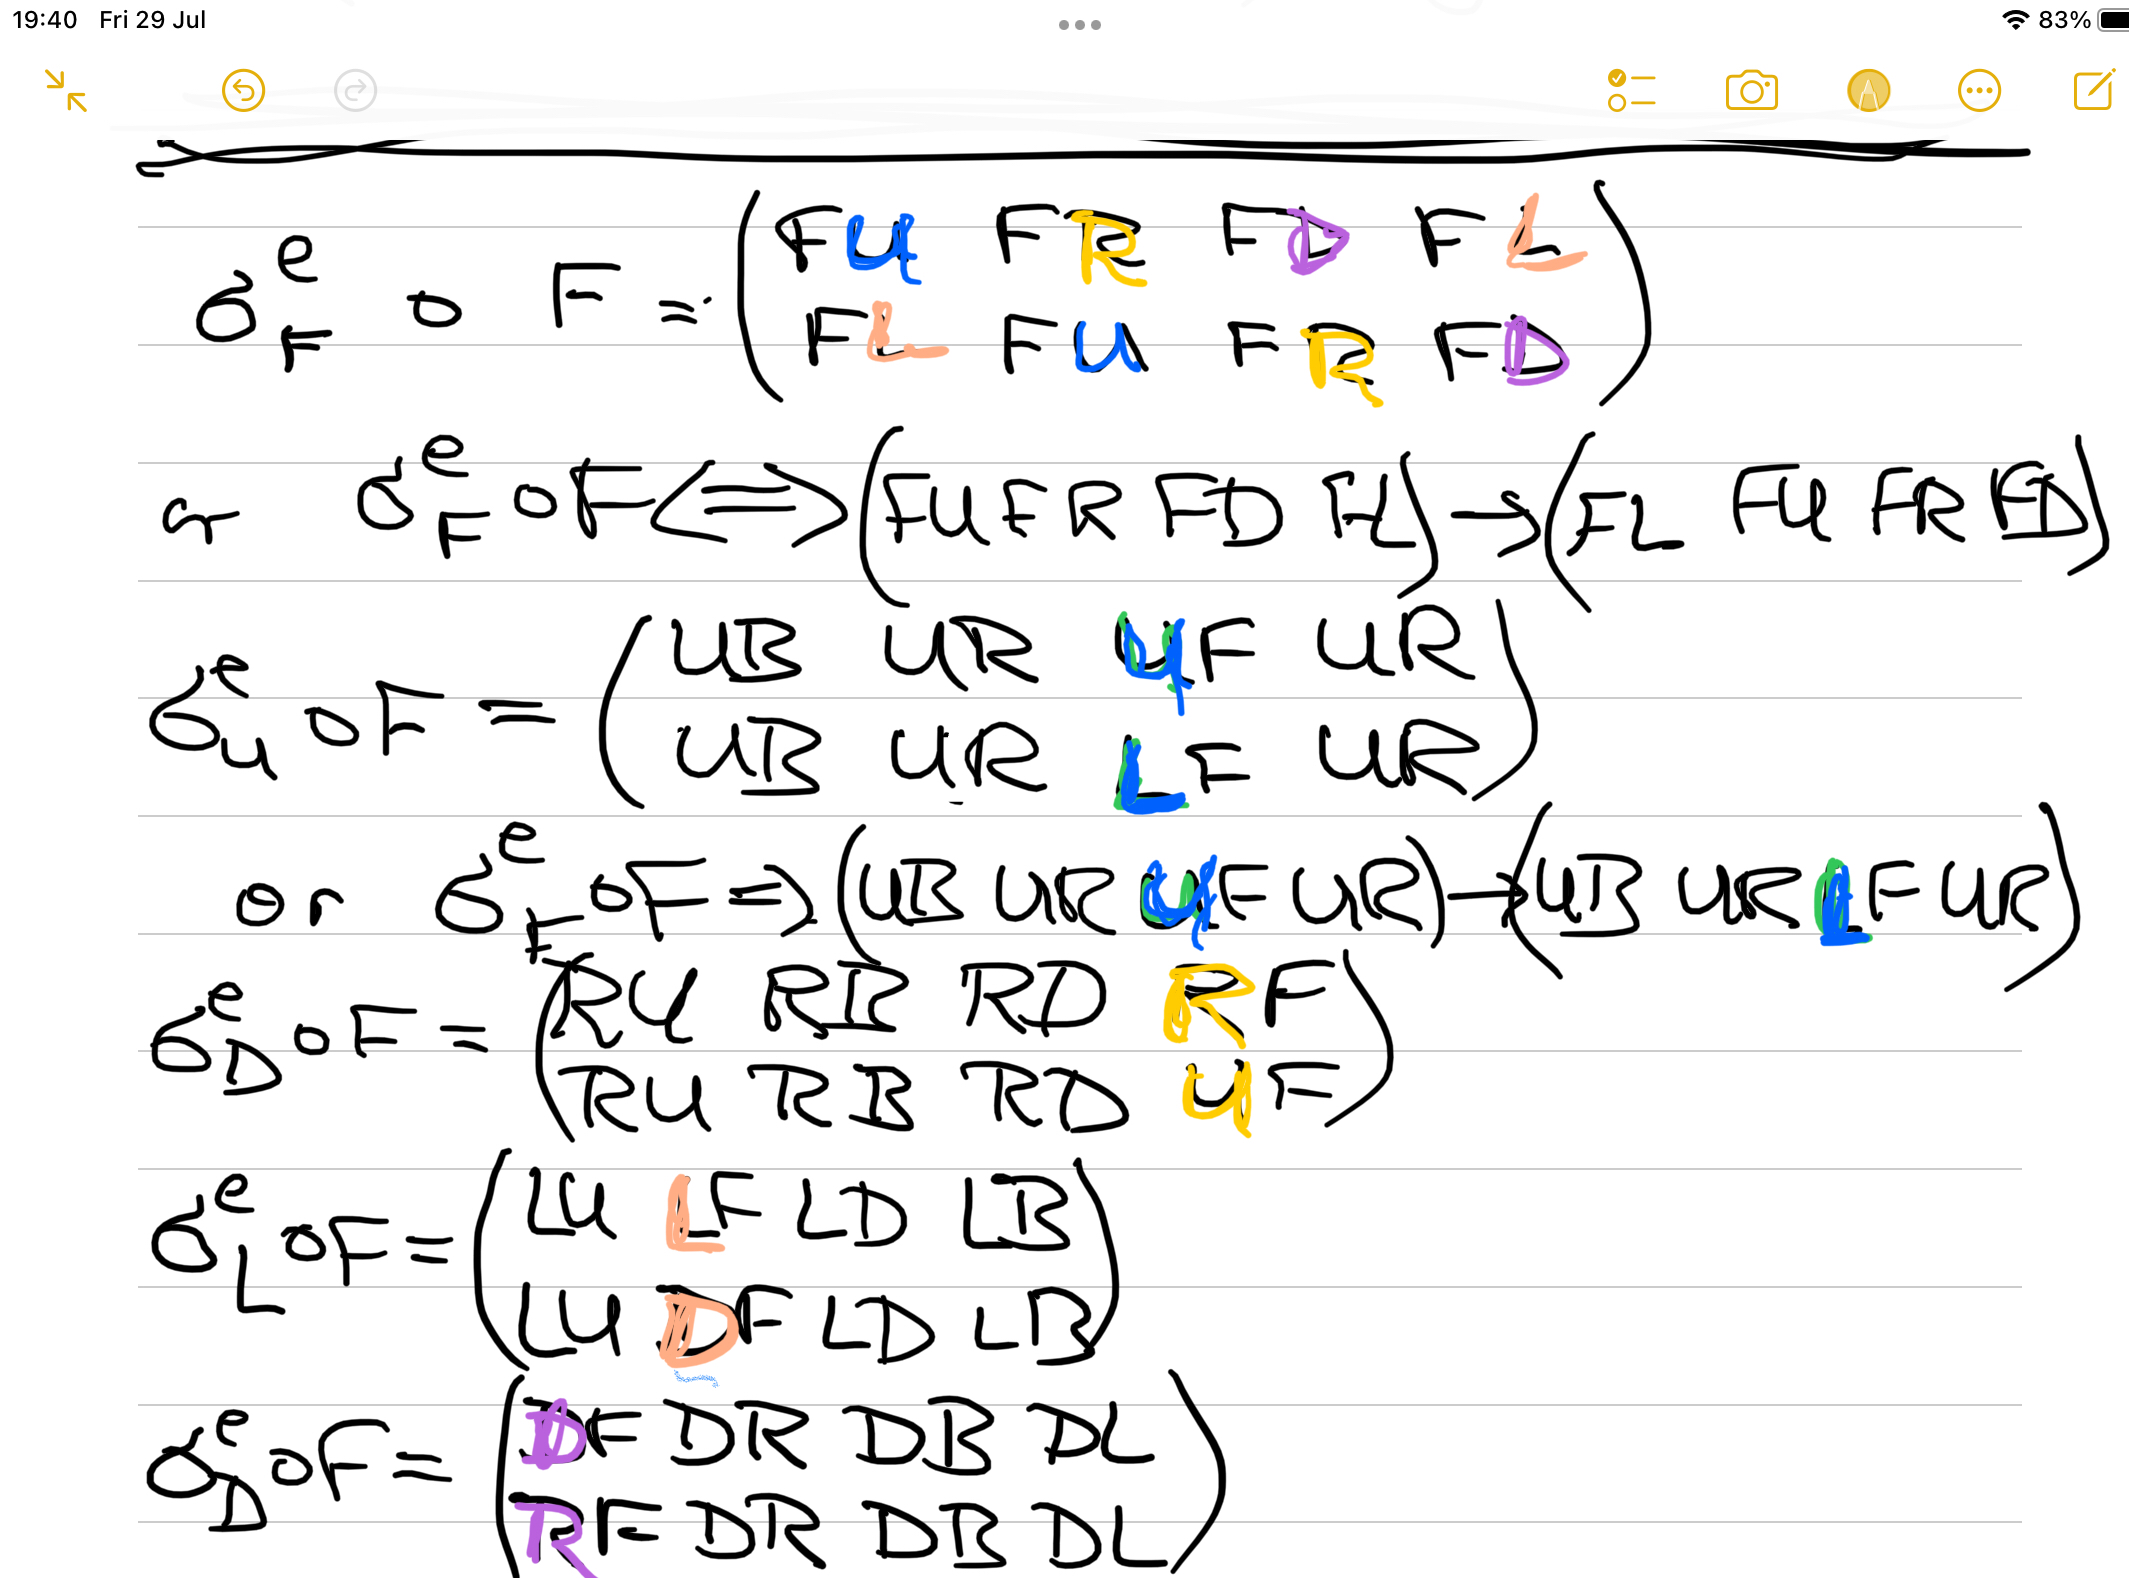 19:40 Fri 29 Jul 83%
σ e F o F = ( FU FR FD FL
FL FU FR FD )
or σ e F o F <=> (FU FR FD FL) → (FL FU FR FD)
σ e U o F = ( UB UR UF UR
UB UR LF UR )
or σ e F o F => (UB UR UF UR) → (UB UR LF UR)
σ e D o F = ( RU RB RD RF
RU RB RD UF )
σ e L o F = ( LU LF LD LB
LU DF LD LB )
σ e D o F = ( DF DR DB DL
RF DR DB DL )